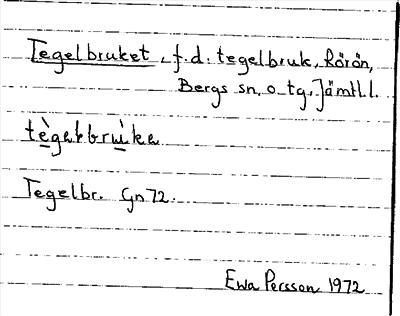 Tegelbruket, f.d. tegelbruk, Rörön,
Bergs sn. o. tg, Jämtl. l.
Tegelbr. Gn 72.
Ewa Persson 1972